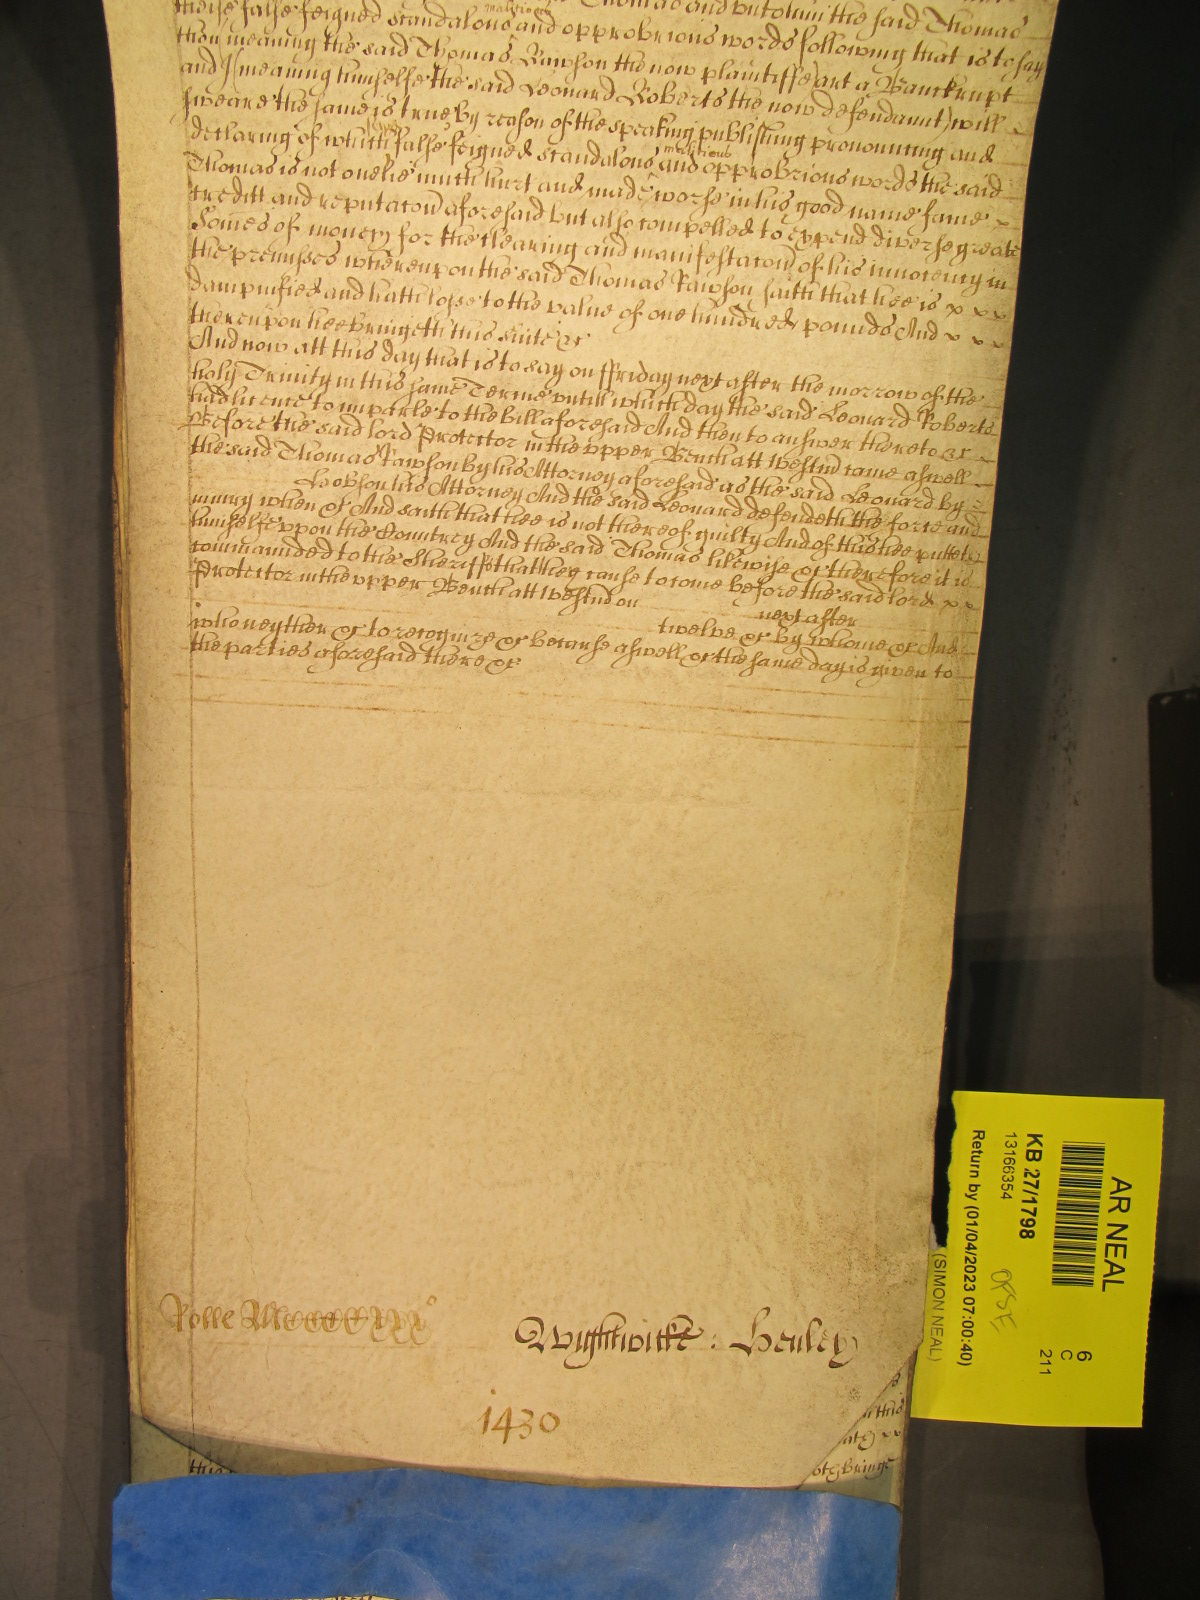 theise false feigned scandalous malitious and opprobrious words following that is to say
thou meaning the said Thomas Rawson the now plaintiffe art a Banckrupt
and I (meaning himselfe the said Leonard Roberts the now defendannt) will
sweare the same is true by reason of the speaking publishing pronouncing and
declaring of which false feigned scandalous malitious and opprobrious words the said
Thomas is not onelie much hurt and made worse in his good name fame x
creditt and reputacon aforesaid but also compelled to expend diverse greate
Somes of money for the clearing and manifestacon of his innocency in
the premisses whereupon the said Thomas Rawson saith that hee is x x x
dampnified and hath losse to the value of one hundred pounds And x x x
thereupon hee bringeth this suite &c
And now att this day that is to say on ffriday next after the morrow of the
holy Trinity in this same Terme untill which day the said Leonard Roberts
had licence to imparle to the bill aforesaid And then to answer thereto &c
Before the said lord Protector in the upper Bench att Westm̃ came aswell
the said Thomas Rawson by his Attorney aforesaid as the said Leonard by
Hobson his Attorney And the said Leonard defendeth the force and
iniury when &c And saith that hee is not thereof guilty And of this hee putteth
himselfe upon the Countrey And the said Thomas likewise &c therefore it is
commannded to the Sheriffe that hee cause to come before the said lord x x
Protector in the upper Bench att Westm̃ on next after
twelve &c by whome &c And
who neyther &c to recognize &c because aswell &c the same day is given to
the parties aforesaid there &c
Rolle
Wightwicke : Henley
1430
AR NEAL
KB 27/1798
13166354
Return by (01/04/2023 07:00:40)
(SIMON NEAL)
6
C
211